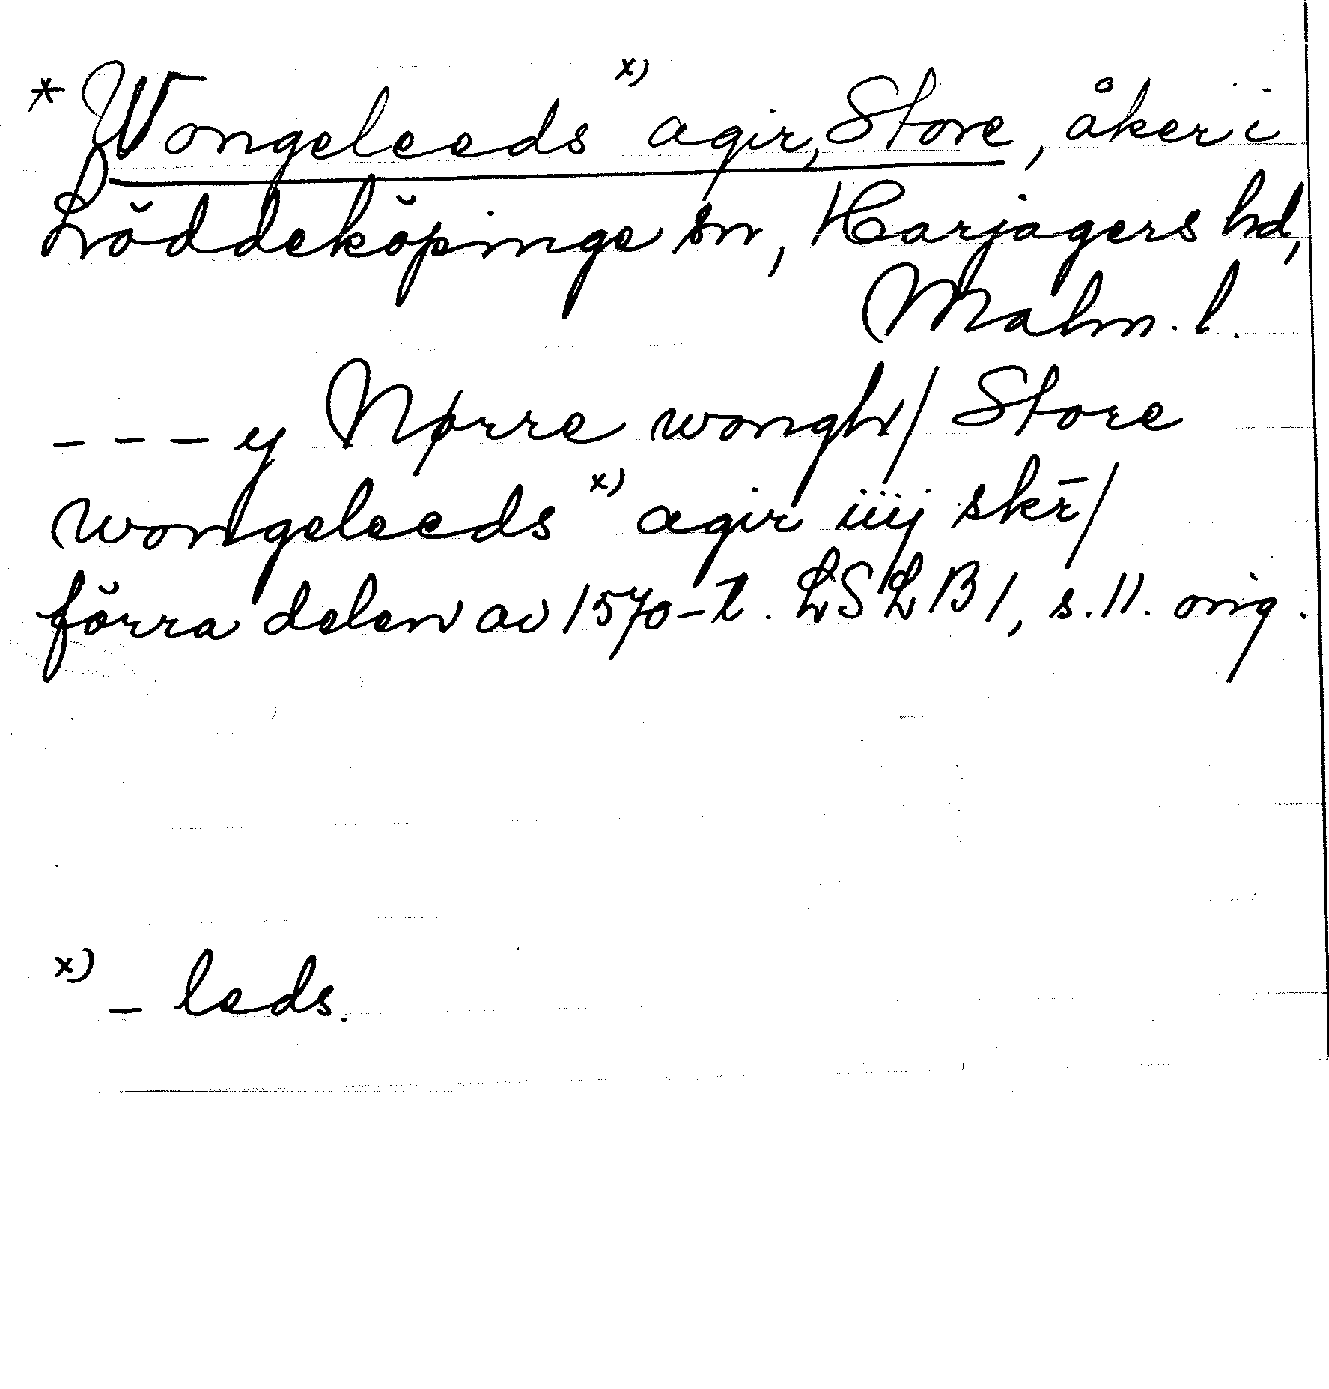 * Wongeleeds x) agir, Store, åker i
Löddeköpinge sn, Harjagers hd,
Malm. l.
- - - y Nørre wongh/ Store
wongeleeds x) agir iiij skr̄/
förra delen av 1570-t. LSLB 1, s. 11. orig.
x) - leds.